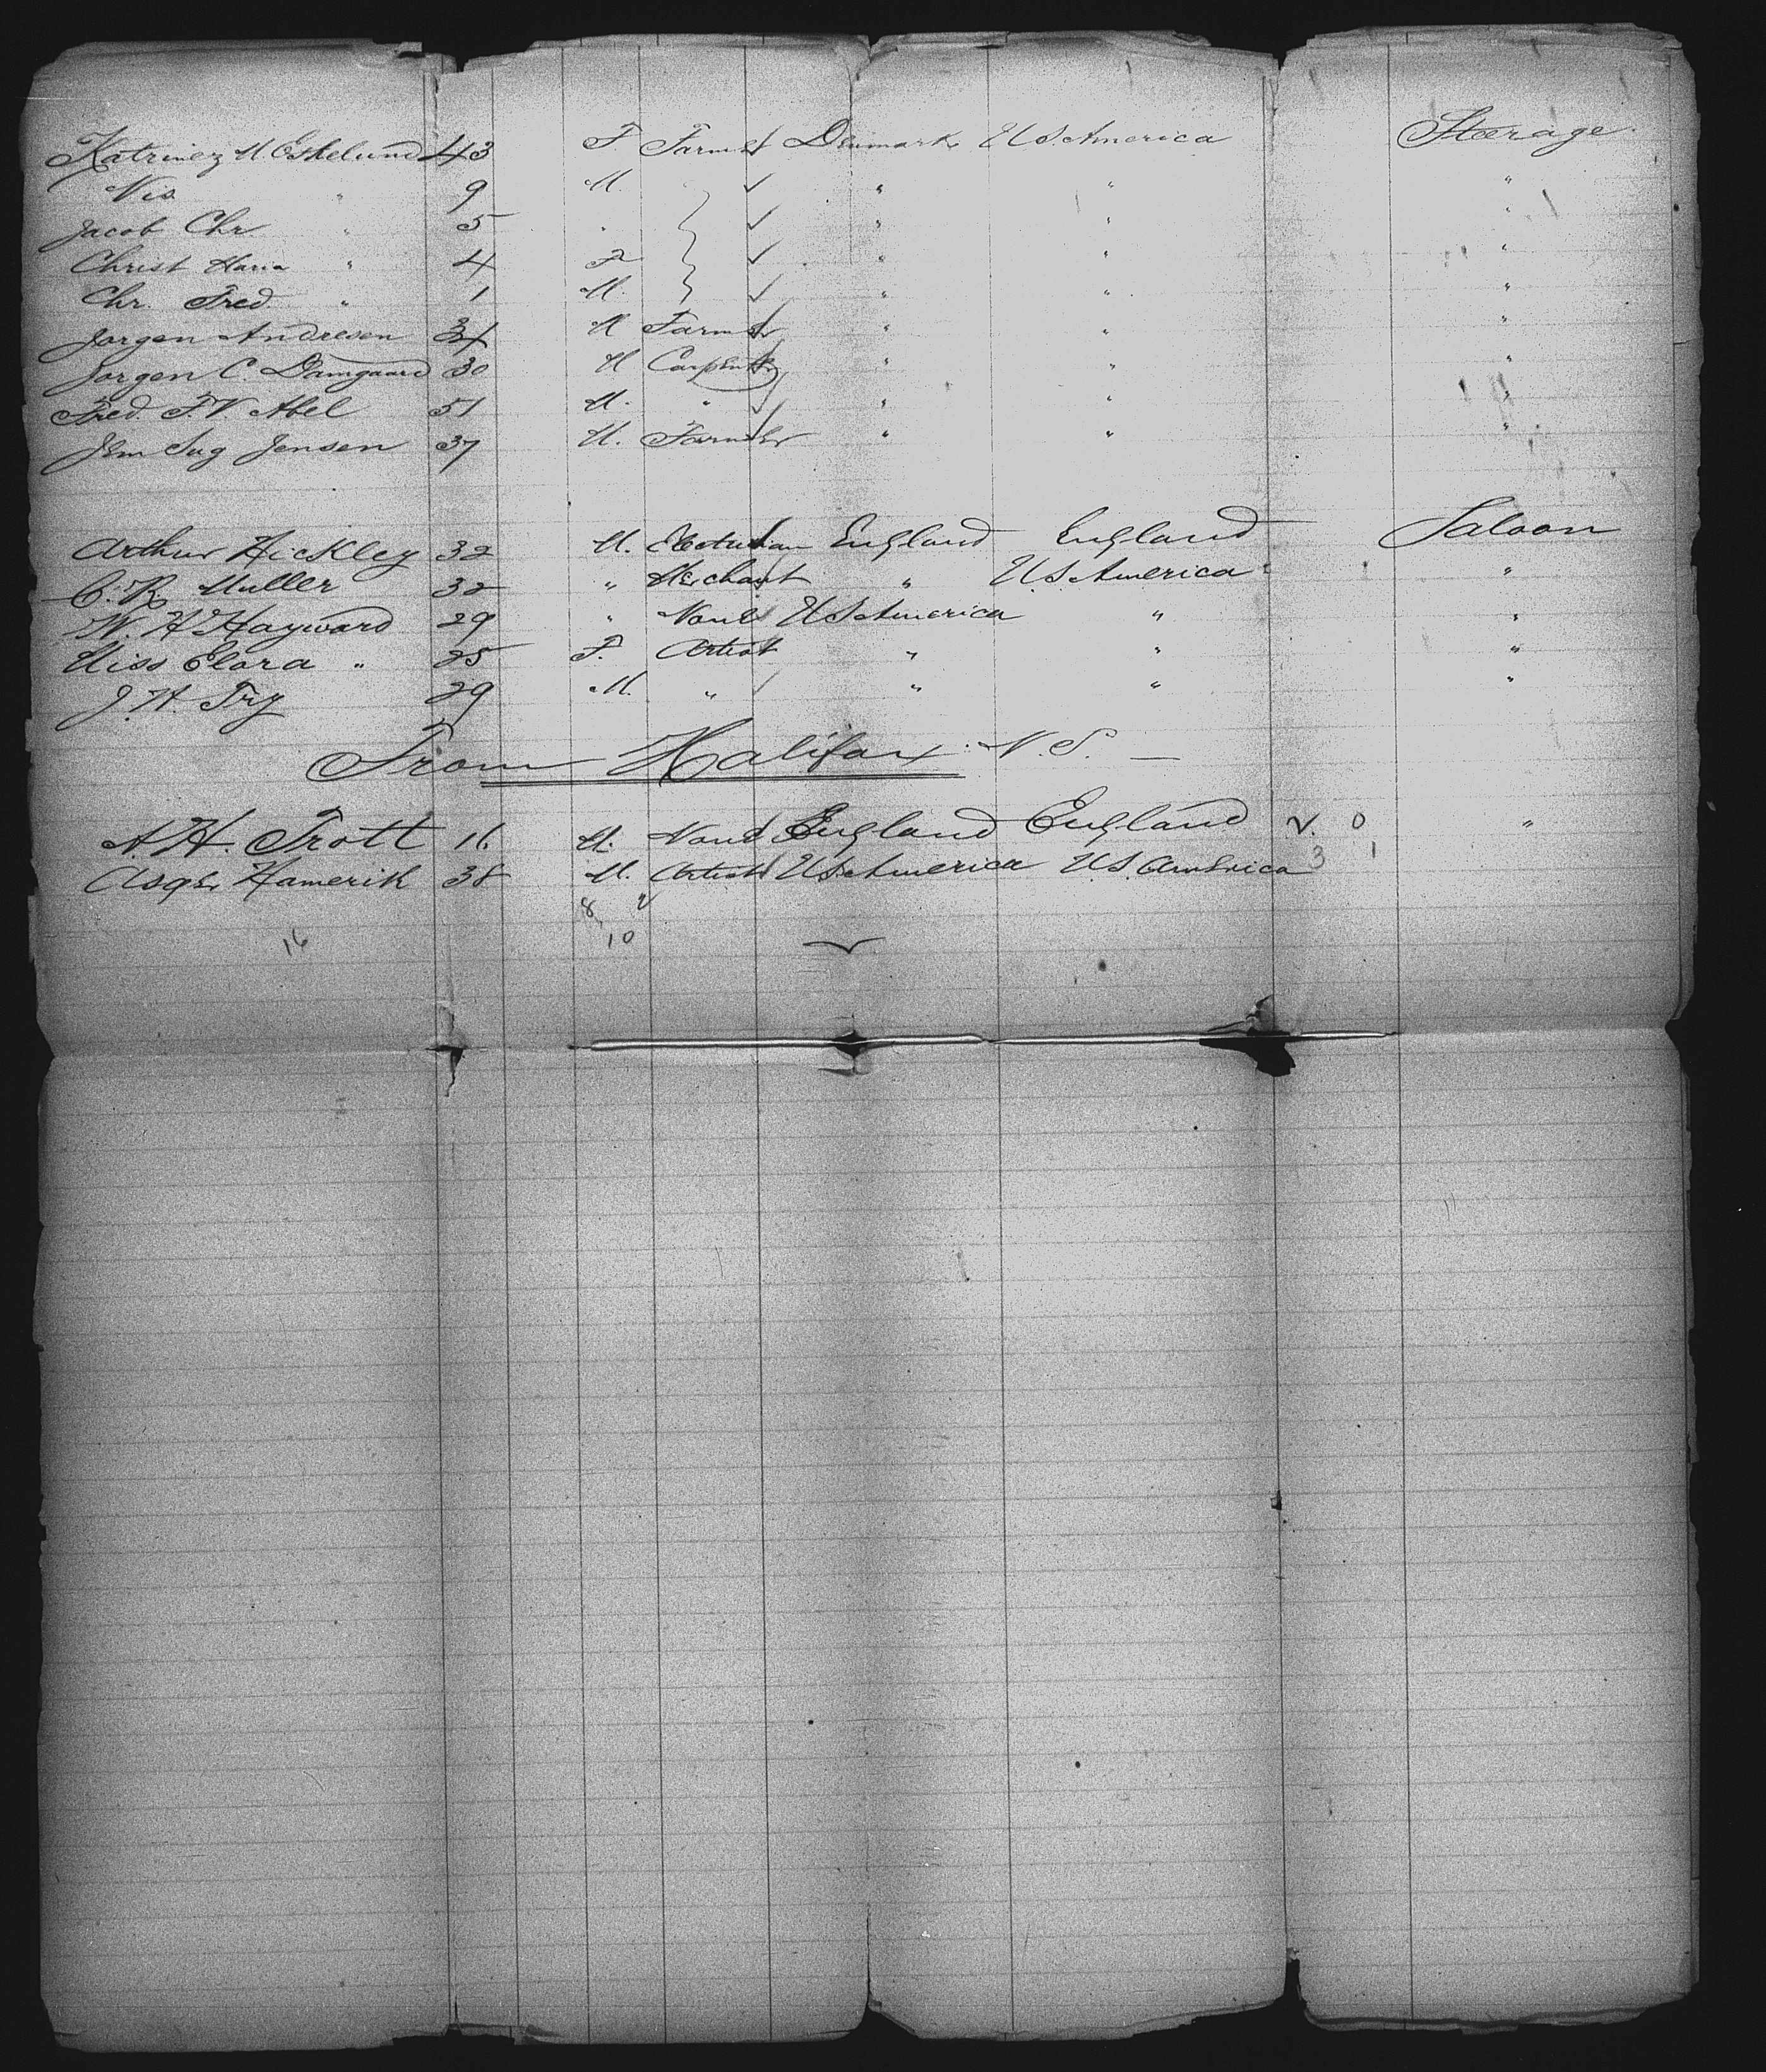 Katrinez M Eskelund 43 F Farmer Denmark U S. America Steerage
Nis " 9 M. " " "
Jacob Chr " 5 " " " "
Christ Maria " 4 F " " "
Chr. Fred. " 1 M. " " "
Jorgen Andresen 34 M Farmer " " "
Jorgen C. Damgaard 30 M Carpenter " " "
Fred. F. V Abel 51 M. " " " "
Jens Jensen 37 M. Farmer " " "
Arthur Hickley 32 M. Electrician England England Saloon
C. R. Muller 32 " Merchant " U S America "
W. H Hayward 29 " None U S America " "
Miss Clara " 25 F. Artist " " "
J. H. Fry 29 M. " " " "
From Halifax N. S. —
A. H. Trott 16 M. None England England 2. 0 "
Asger Hamerik 38 M. Artist U S America U S. America 3 1
8 2
16 10